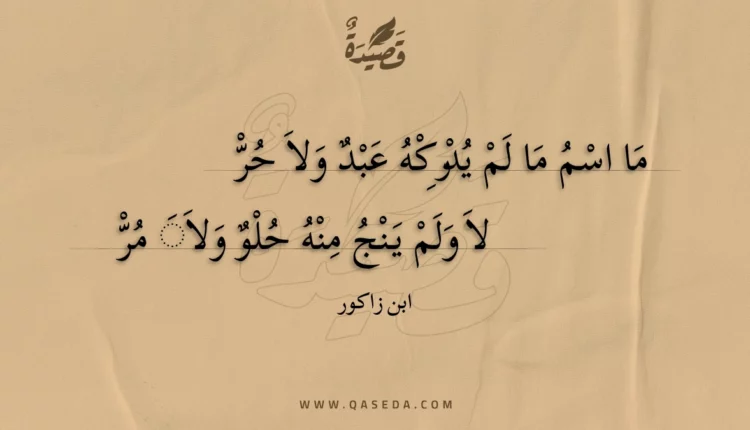 قَصِيدَةٌ
مَا اسْمُ مَا لَمْ يُدْوِكْهُ عَبْدٌ وَلاَ حُرّْ
لاَ وَلَمْ يَنْجُ مِنْهُ حُلْوٌ وَلاَ َ مُرّْ
ابن زاكور
WWW.QASEDA.COM